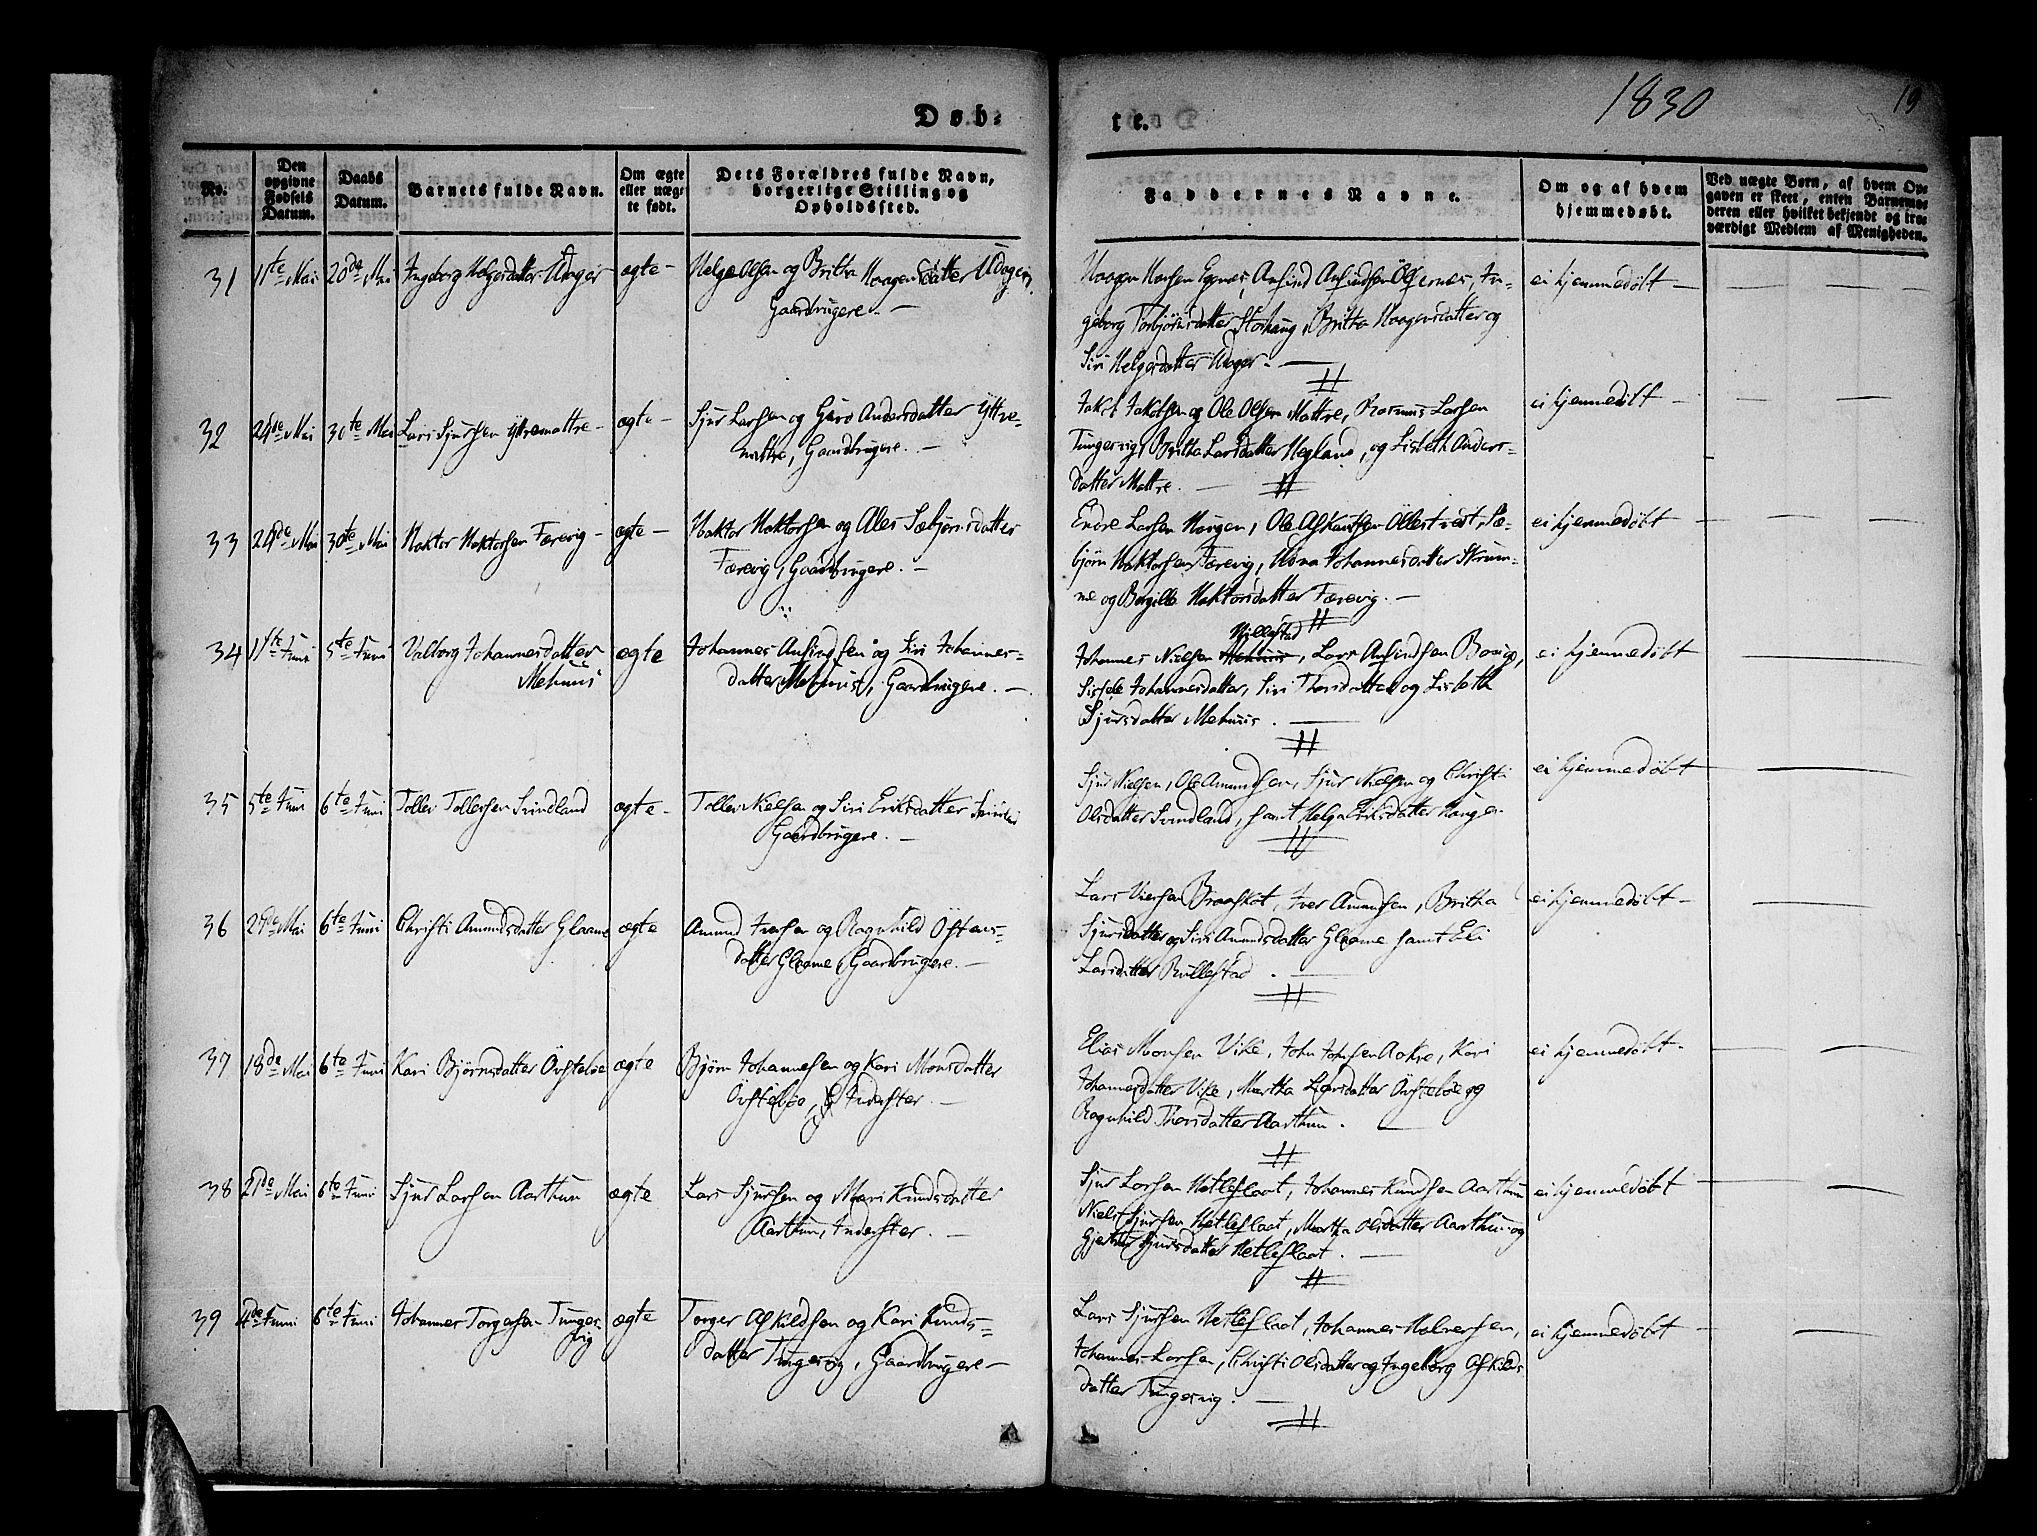 Døb=
te.
1830
19
No.
Den
opgivne
Fødsels
Datum.
Daabs
Datum.
Barnets fulde Navn.
Om ægte
eller uæg=
te født.
Dets Forældres fulde Navn,
borgerlige Stilling og
Opholdssted.
Faddernes Navne.
Om og af hvem
hjemmedøbt.
Ved uægte Børn, af hvem Op=
gaven er skeet, enten Barnemo=
deren eller hvilket bekjendt og tro=
værdigt Medlem af Menigheden.
31 11te Mai 20de Mai Ingeborg Helgesdatter ægte - Helge Olsen og Britha Haagensdatter
Gaardbrugere. -
Haagen Hansen Egenes, Anfind Anfindsen Ølfernes, In-
geborg Torbjørnsdatter Storhaug, Britha Haagensdatter og
Siri Helgesdatter
ei hjemmedøbt -
32 24de Mai 30te Mai Lars Sjursen Yttremattre - ægte - Sjur Larsen og Guro Andersdatter Yttre-
mattre, Gaardbrugere. -
Jakob Jakobsen og Ole Olsen Mattre, Rasmus Larsen
Tungesvig, Britha Larsdatter Hegland, og Lisbeth Anders-
datter Mattre.
ei hjemmedøbt -
33 20de Mai 30te Mai Haktor Haktorsen Færevig - ægte - Haktor Haktorsen og Ales Sæbjørnsdatter
Færevig, Gaardbrugere. -
Endre Larsen Haugen, Ole Asfantsen Øllestvedt, Sæ-
bjørn Haktorsen Færevig, Johannesdatter Skrum-
me og Borgille Haktorsdatter Færevig. -
ei hjemmedøbt
34 11te Juni 5te Juni Valborg Johannesdatter
Mehuus
ægte Johannes Anfindsen og Siri Johannes=
datter Mehuus, Gaardbrugere. -
Hillestad
Johannes Nielsen Mehuus, Lars Anfindsen
Sissele Johannesdatter, Siri Thorsdatter og Lisbeth
Sjursdatter Mehuus. -
ei hjemmedøbt
35 5te Juni 6te Juni Tollev Tollefsen Svindland ægte - Tollev Nielsen og Siri Eriksdatter
Gaardbrugere. -
Sjur Nielsen, Ole Amundsen, Sjur Nielsen og Christi
Olsdatter Svindland, samt Helga Eriksdatter Haugen
ei hjemmedøbt
36 Mai 6te Juni Christi Amundsdatter Glaame ægte Amund Iversen og Ragnhild Østens=
datter Glaame, Gaardbrugere. -
Lars Braaskot, Iver Amundsen, Britha
Sjursdatter og Siri Amundsdatter Glaame samt Eli
Larsdatter Rullestad. -
ei hjemmedøbt -
37 18de Mai 6te Juni Kari Bjørnsdatter Øvstebøe ægte Bjørn Johannesen og Kari Monsdatter
Øvstebøe, Inderster. -
Elias Monsen Vike, John Johnsen Aakre, Kari
Johannesdatter Vike, Martha Larsdatter Øvstebøe og
Ragnhild Thorsdatter Aarthun. -
ei hjemmedøbt -
38 21de Mai 6te Juni Sjur Larsen Aarthun ægte Lars Sjursen og Mari Knudsdatter
Aarthun, Inderster. -
Sjur Larsen Netleflaat, Johannes Knudsen Aarthun
Niels Sjursen Netleflaat, Martha Olsdatter Aarthun og
Sjursdatter Netleflaat. -
ei hjemmedøbt
39 4de Juni 6te Juni Johannes Torgersen Tunges-
vig
ægte Torger Asfildsen og Kari Knuds=
datter Tungesvig, Gaardbrugere -
Lars Sjursen Netleflaat, Johannes Halversen,
Johannes Larsen, Christi Olsdatter og Ingeborg Asfilds
datter Tungesvig. -
ei hjemmedøbt